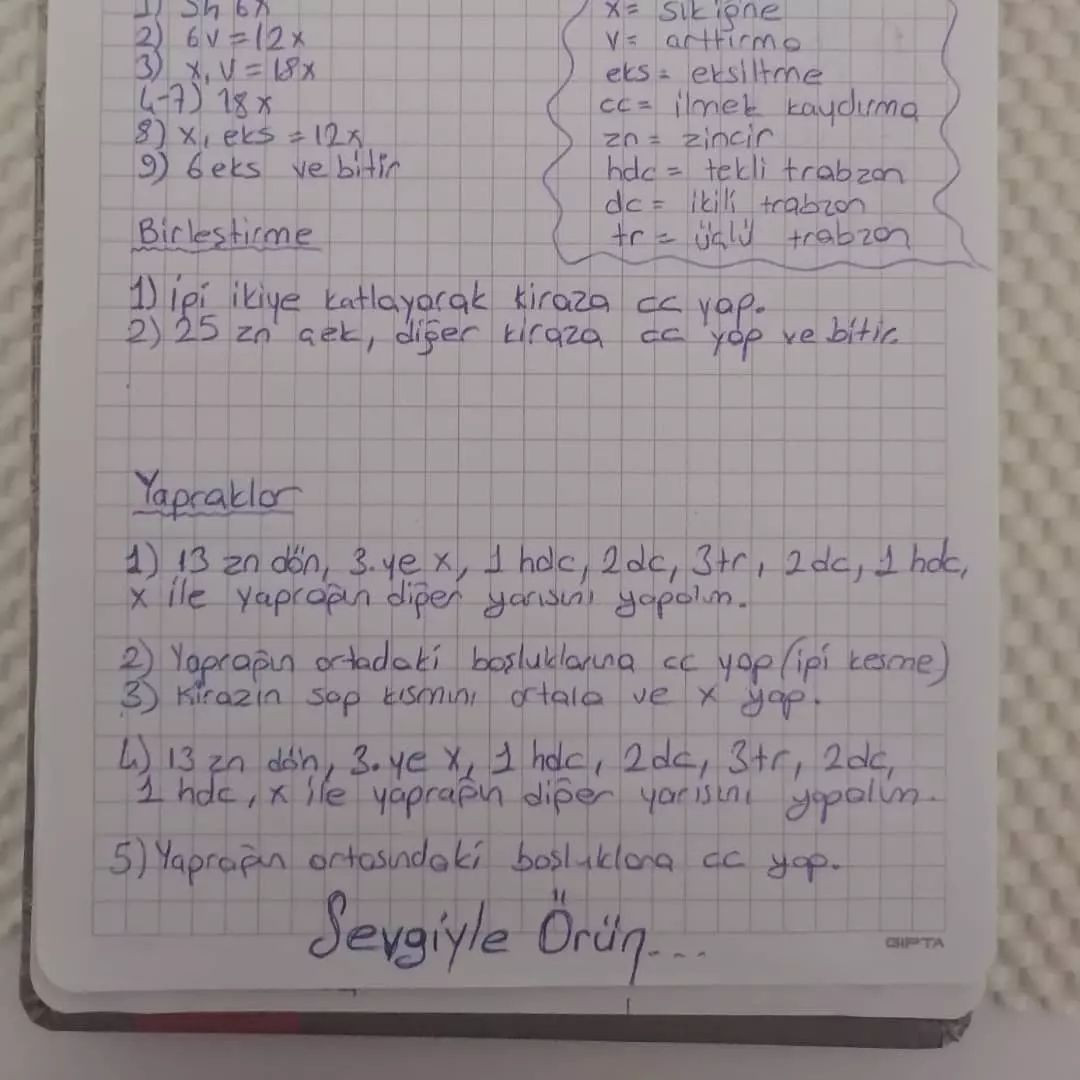 1) Sh 6x
2) 6v = 12x
3) x, v = 18x
4-7) 18x
8) x, eks = 12x
9) 6 eks ve bitir
x = sık iğne
v = arttırma
eks = eksiltme
cc = ilmek kaydırma
zn = zincir
hdc = tekli trabzan
dc = ikili trabzon
tr = üçlü trabzon
Birleştirme
1) İpi ikiye katlayarak kiraza cc yap.
2) 25 zn çek, diğer kiraza cc yap ve bitir.
Yapraklar
1) 13 zn dön, 3. ye x, 1 hdc, 2 dc, 3 tr, 2 dc, 1 hdc,
x ile yaprağın diğer yarısını yapalım.
2) Yaprağın ortadaki boşluklarına cc yap (ipi kesme)
3) Kirazın sap kısmını ortala ve x yap.
4) 13 zn dön, 3. ye x, 1 hdc, 2 dc, 3 tr, 2 dc,
1 hdc, x ile yaprağın diğer yarısını yapalım.
5) Yaprağın ortasındaki boşluklara cc yap.
Sevgiyle Örün...
GIPTA